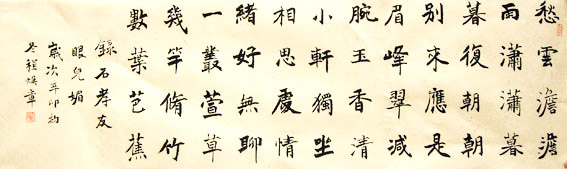 愁雲澹澹
雨瀟瀟暮
暮復朝朝
別來應是
眉峰翠減
腕玉香清
小軒獨坐
相思處情
緒好無聊
一叢萱草
幾竿脩竹
數葉芭蕉
錄石孝友
眼兒媚
歲次辛卯初
冬程煥章